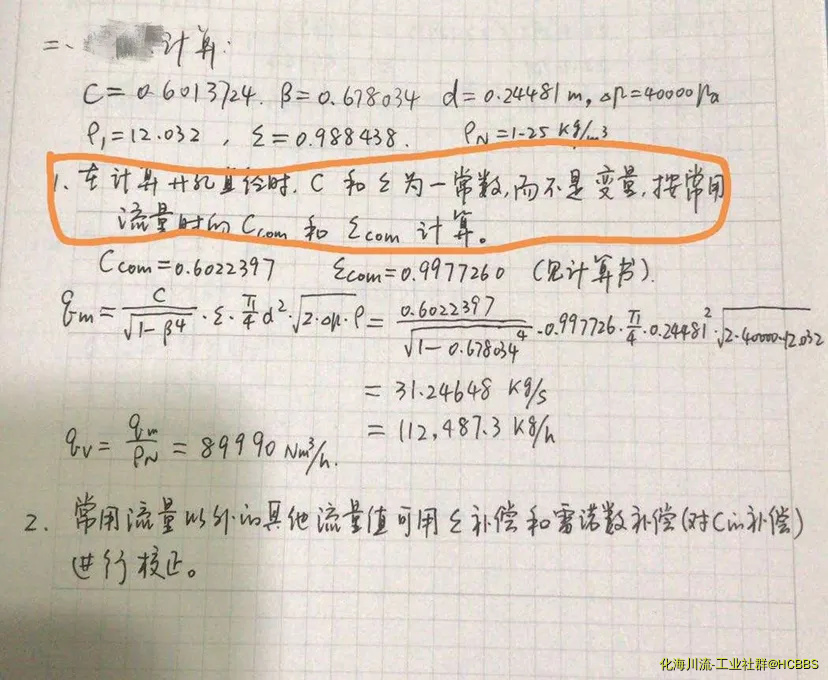 二、计算:
C=0.6013724. β=0.678034 d=0.24481m, Δp=40000Pa
ρ₁=12.032, ε=0.988438. ρN=1.25 kg/m³
1、在计算开孔直径时, C 和 ε 为一常数,而不是变量,按常用
流量时的 Ccom 和 εcom 计算。
Ccom=0.6022397 εcom=0.9977260 (见计算书).
qm = C/√(1-β⁴) · ε · π/4 d² · √(2·Δp·ρ) = 0.6022397/√(1-0.678034⁴) · 0.997726 · π/4 · 0.24481² · √(2·40000·12.032)
= 31.24648 kg/s
= 112,487.3 kg/h
qv = qm/ρN = 89990 Nm³/h.
2. 常用流量以外的其他流量值可用 ε 补偿和雷诺数补偿(对C的补偿)
进行校正。
化海川流-工业社群@HCBBS